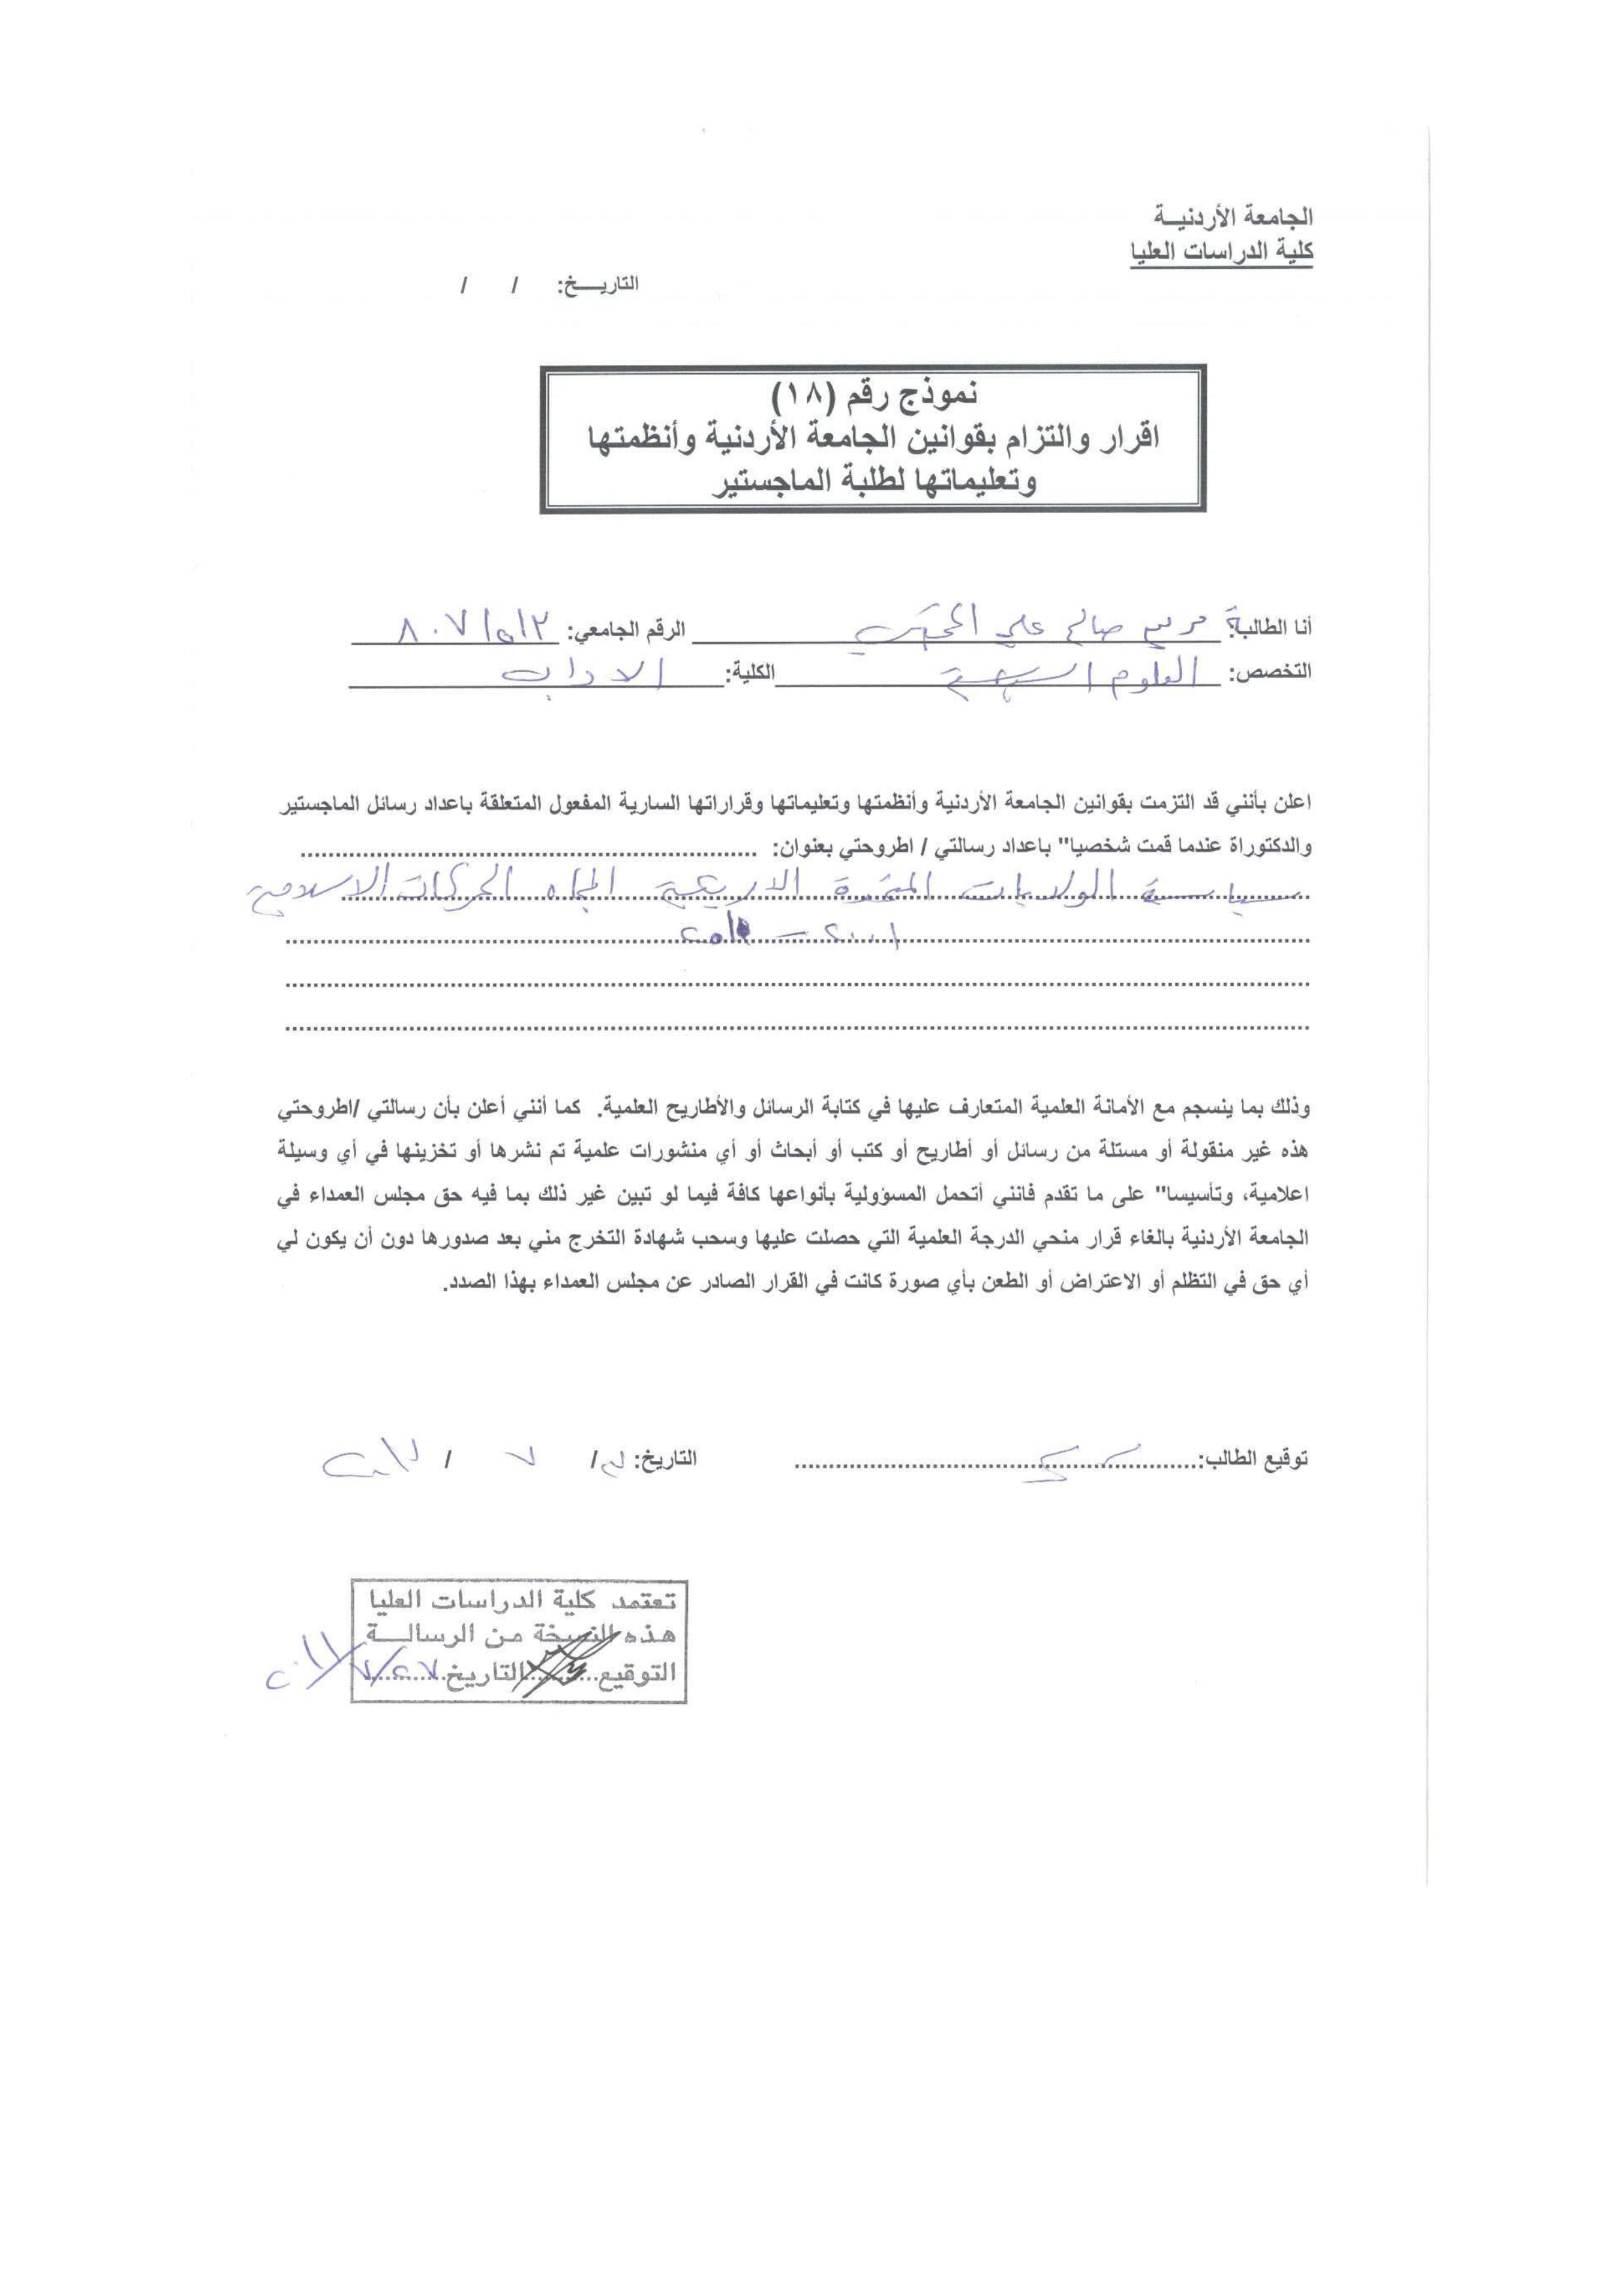 الجامعة الأردنيــة
كلية الدراسات العليا
التاريــــخ: / /
نموذج رقم (١٨)
اقرار والتزام بقوانين الجامعة الأردنية وأنظمتها
وتعليماتها لطلبة الماجستير
أنا الطالبة: مريم صالح علي الرقم الجامعي: ٨٠٧١٥١٣
التخصص: العلوم السياسية الكلية: الاداب
اعلن بأنني قد التزمت بقوانين الجامعة الأردنية وأنظمتها وتعليماتها وقراراتها السارية المفعول المتعلقة باعداد رسائل الماجستير
والدكتوراة عندما قمت شخصيا" باعداد رسالتي / اطروحتي بعنوان:
سياسة الولايات المتحدة الامريكية اتجاه الحركات الاسلامية
٢٠٠١ –
وذلك بما ينسجم مع الأمانة العلمية المتعارف عليها في كتابة الرسائل والأطاريح العلمية. كما أنني أعلن بأن رسالتي /اطروحتي
هذه غير منقولة أو مستلة من رسائل أو أطاريح أو كتب أو أبحاث أو أي منشورات علمية تم نشرها أو تخزينها في أي وسيلة
اعلامية، وتأسيسا" على ما تقدم فانني أتحمل المسؤولية بأنواعها كافة فيما لو تبين غير ذلك بما فيه حق مجلس العمداء في
الجامعة الأردنية بالغاء قرار منحي الدرجة العلمية التي حصلت عليها وسحب شهادة التخرج مني بعد صدورها دون أن يكون لي
أي حق في التظلم أو الاعتراض أو الطعن بأي صورة كانت في القرار الصادر عن مجلس العمداء بهذا الصدد.
توقيع الطالب: التاريخ: / ٧ /
تعتمد كلية الدراسات العليا
هذه النسخة من الرسالــة
التوقيع التاريخ ٢٧/٧/٢٠١١